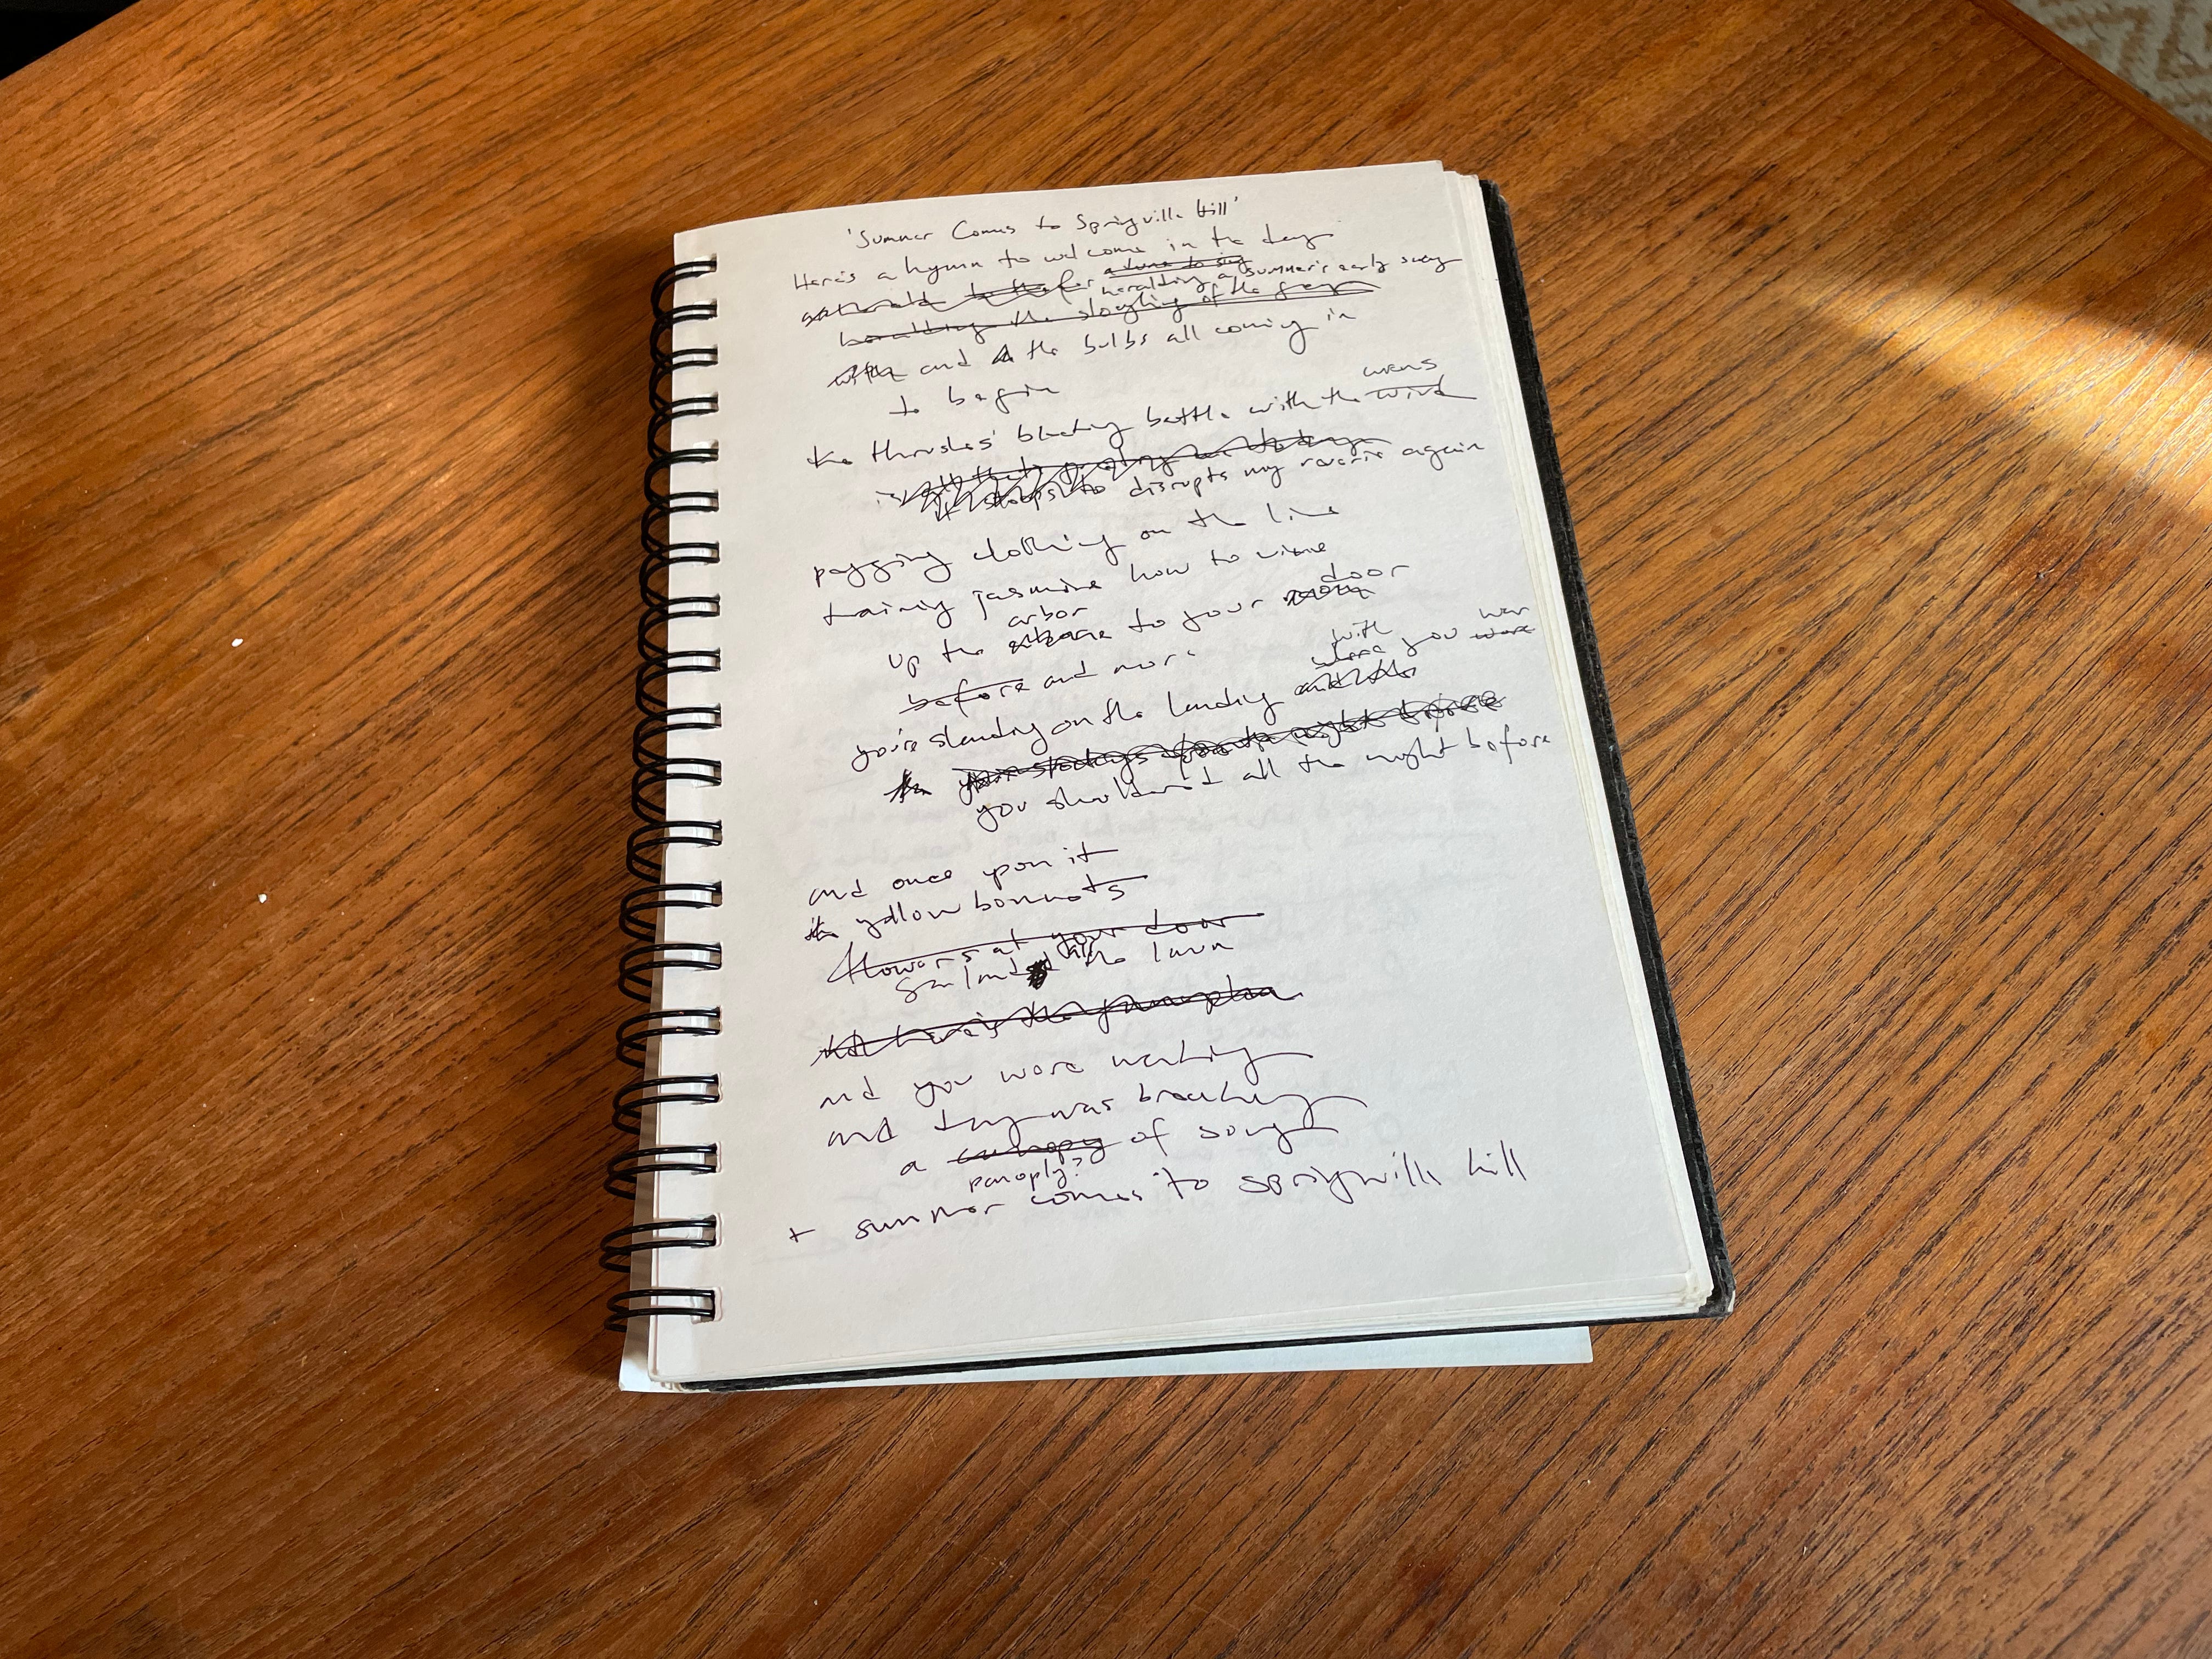 'Summer Comes to Springville Hill'
Here's a hymn to welcome in the day
a tune to say
heralding a summer's early sway
heralding the sloughing of the gray
and the bulbs all coming in
to begin
wrens
the thrushes' bleating battle with the wind
disrupts my reverie again
pegging clothing on the line
training jasmine how to vine
arbor door
up the to your
before and more
with war
where
you're standing on the landing you wore
you shouldered all the night before
and once upon it
yellow bonnets
flowers at your door
garland all the lawn
and you were waking
and day was breaking
a canopy of song
panoply?
+ summer comes to Springville hill